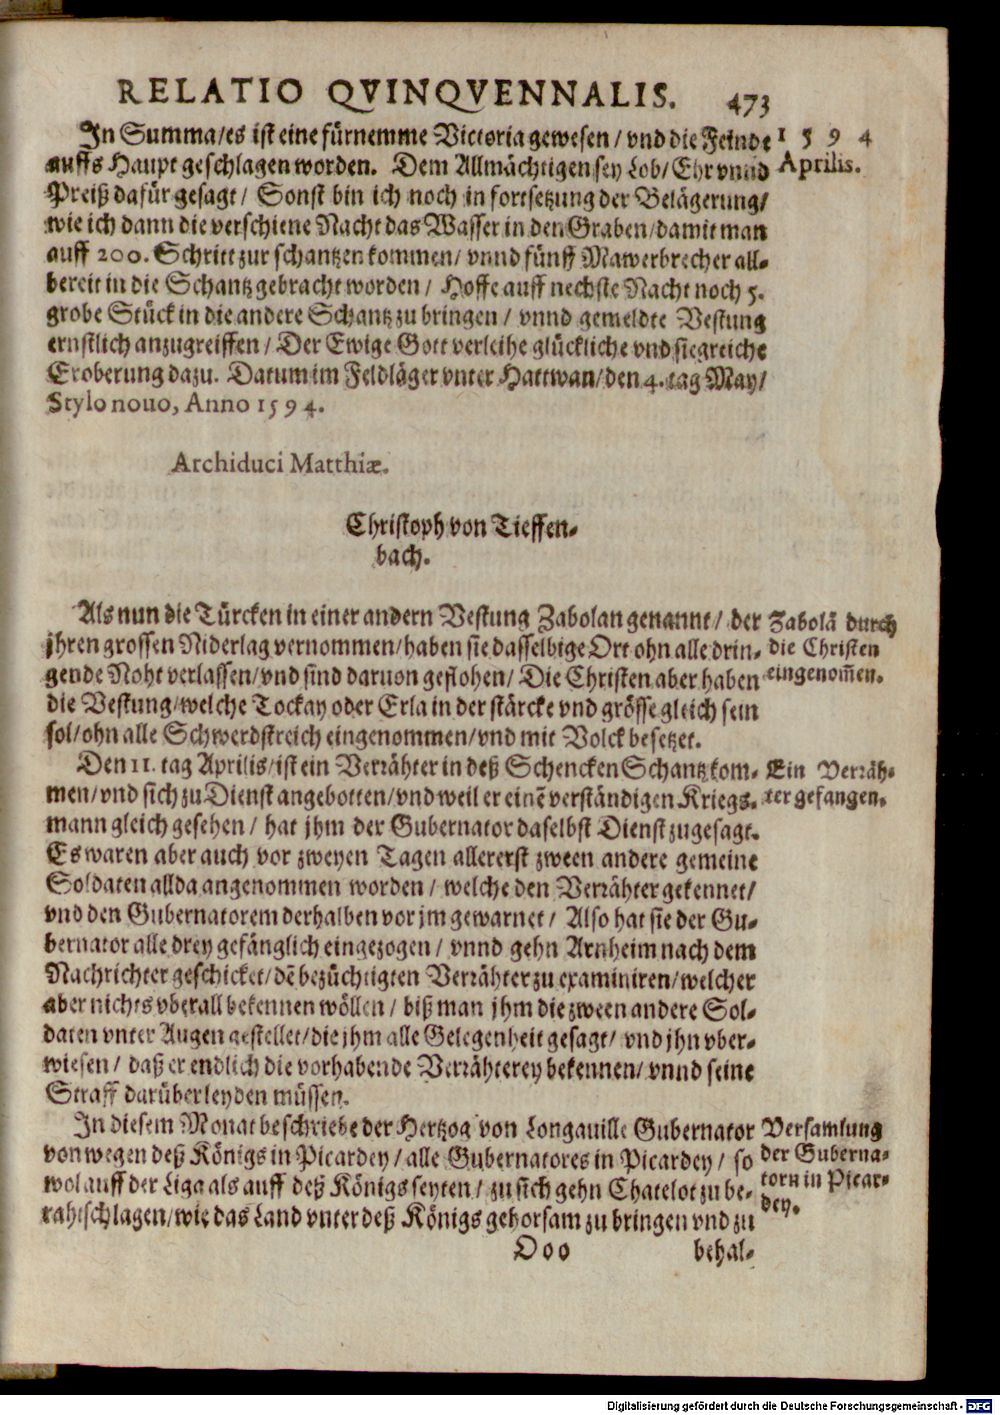 RELATIO QVINQVENNALIS. 473
In Summa/es ist eine fürnemme Victoria gewesen/vnd die Feinde
auffs Haupt geschlagen worden. Dem Allmächtigen sey Lob/Ehr vnnd
Preiß dafür gesagt/ Sonst bin ich noch in fortsetzung der Belägerung/
wie ich dann die verschiene Nacht das Wasser in den Graben/damit man
auff 200. Schritt zur schantzen kommen/ vnnd fünff Mawerbrecher all-
bereit in die Schantz gebracht worden/ Hoffe auff nechste Nacht noch 5.
grobe Stück in die andere Schantz zu bringen/ vnnd gemeldte Vestung
ernstlich anzugreiffen/ Der Ewige Gott verleihe glückliche vnd siegreiche
Eroberung dazu. Datum im Feldläger vnter Hattwan/den 4. tag May/
Stylo nouo, Anno 1594.
1594
Aprilis.
Archiduci Matthiæ.
Christoph von Tieffen-
bach.
Als nun die Türcken in einer andern Vestung Zabolan genannt/ der
jhren grossen Niderlag vernommen/haben sie dasselbige Ort ohn alle drin-
gende Noht verlassen/vnd sind daruon geflohen/ Die Christen aber haben
die Vestung/welche Tockay oder Erla in der stärcke vnd grösse gleich sein
sol/ohn alle Schwerdstreich eingenommen/vnd mit Volck besetzet.
Zabolā durch
die Christen
eingenom̃en.
Den 11. tag Aprilis/ist ein Verrähter in deß Schencken Schantz kom-
men/vnd sich zu Dienst angebotten/vnd weil er einē verständigen Kriegs-
mann gleich gesehen/ hat jhm der Gubernator daselbst Dienst zugesagt.
Es waren aber auch vor zweyen Tagen allererst zween andere gemeine
Soldaten allda angenommen worden/ welche den Verrähter gekennet/
vnd den Gubernatorem derhalben vor jm gewarnet/ Also hat sie der Gu-
bernator alle drey gefänglich eingezogen/ vnnd gehn Arnheim nach dem
Nachrichter geschicket/dē bezüchtigten Verrähter zu examiniren/welcher
aber nichts vberall bekennen wöllen/ biß man jhm die zween andere Sol-
daten vnter Augen gestellet/die jhm alle Gelegenheit gesagt/ vnd jhn vber-
wiesen/ daß er endlich die vorhabende Verrähterey bekennen/ vnnd seine
Straff darüber leyden müssen.
Ein Verräh-
ter gefangen.
In diesem Monat beschriebe der Hertzog von Longauille Gubernator
von wegen deß Königs in Picardey/alle Gubernatores in Picardey/ so
wol auff der Liga als auff deß Königs seyten/ zu sich gehn Chatelot zu be-
rahtschlagen/wie das Land vnter deß Königs gehorsam zu bringen vnd zu
Versamlung
der Guberna-
torn in Picar-
dey.
Ooo behal-
Digitalisierung gefördert durch die Deutsche Forschungsgemeinschaft - DFG